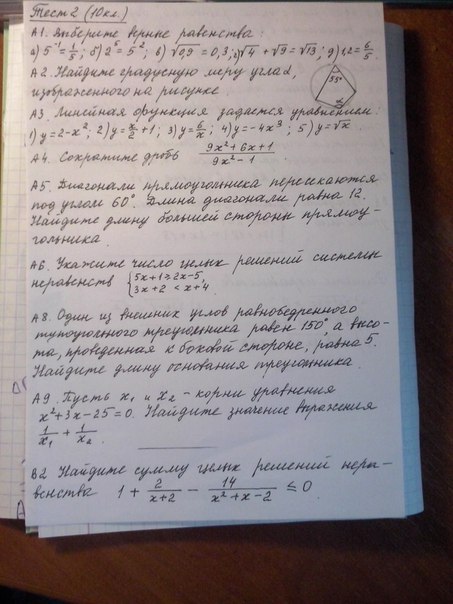 Тест 2 (10кл.)
А1. Выберите верные равенства:
а) 5⁻¹ = 1/5; б) 2⁵ = 5²; в) √0,9 = 0,3; г) √4 + √9 = √13; д) 1,2 = 6/5.
А2. Найдите градусную меру угла α,
изображенного на рисунке.
55°
α
А3. Линейная функция задается уравнением:
1) y = 2 - x²; 2) y = x/2 + 1; 3) y = 6/x; 4) y = -4x⁹; 5) y = √x
А4. Сократите дробь (9x² + 6x + 1)/(9x² - 1).
А5. Диагонали прямоугольника пересекаются
под углом 60°. Длина диагонали равна 12.
Найдите длину большей стороны прямоу-
гольника.
А6. Укажите число целых решений системы
неравенств { 5x + 1 ≥ 2x - 5,
3x + 2 < x + 4
А8. Один из внешних углов равнобедренного
тупоугольного треугольника равен 150°, а высо-
та, проведенная к боковой стороне, равна 5.
Найдите длину основания треугольника.
А9. Пусть x₁ и x₂ - корни уравнения
x² + 3x - 25 = 0. Найдите значение выражения
1/x₁ + 1/x₂.
В2 Найдите сумму целых решений нера-
венства 1 + 2/(x+2) - 14/(x² + x - 2) ≤ 0